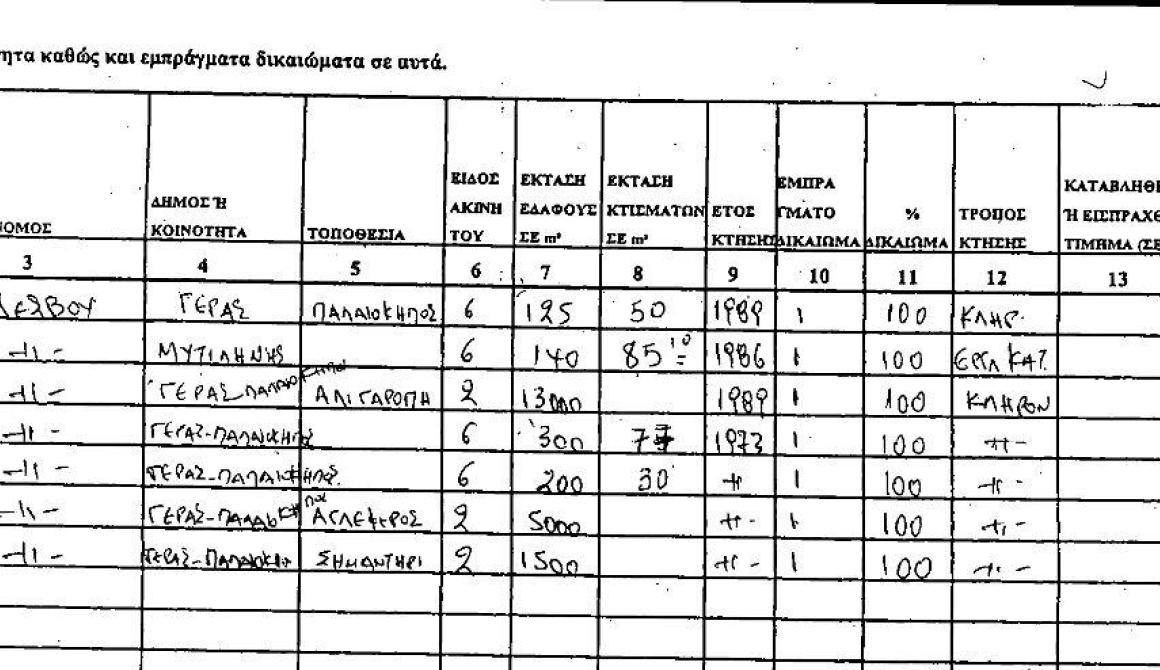 ητα καθώς και εμπράγματα δικαιώματα σε αυτά.
ΝΟΜΟΣ ΔΗΜΟΣ Ή ΚΟΙΝΟΤΗΤΑ ΤΟΠΟΘΕΣΙΑ ΕΙΔΟΣ ΑΚΙΝΗ ΤΟΥ ΕΚΤΑΣΗ ΕΔΑΦΟΥΣ ΣΕ m² ΕΚΤΑΣΗ ΚΤΙΣΜΑΤΩΝ ΣΕ m² ΕΤΟΣ ΚΤΗΣΗΣ ΕΜΠΡΑ ΓΜΑΤΟ ΔΙΚΑΙΩΜΑ % ΔΙΚΑΙΩΜΑ ΤΡΟΠΟΣ ΚΤΗΣΗΣ ΚΑΤΑΒΛΗΘΕ Ή ΕΙΣΠΡΑΧΘ ΤΙΜΗΜΑ (ΣΕ
3 4 5 6 7 8 9 10 11 12 13
ΛΕΣΒΟΥ ΓΕΡΑΣ ΠΑΛΑΙΟΚΗΠΟΣ 6 125 50 1989 1 100 ΚΛΗΡ.
-11- ΜΥΤΙΛΗΝΗΣ 6 140 85 10 1986 1 100 ΕΡΓΛ ΚΑΤ.
-11- ΓΕΡΑΣ ΠΑΛΑΙΟΚΗΠΟΣ ΑΛΙΓΑΡΟΠΗ 2 13000 1989 1 100 ΚΛΗΡΟΝ
-11- ΓΕΡΑΣ-ΠΑΛΑΙΟΚΗΠΟΣ 6 300 77 1973 1 100 -11-
-11- ΓΕΡΑΣ-ΠΑΛΑΙΟΚΗΠΟΣ. 6 200 30 -11- 1 100 -11-
-11- ΓΕΡΑΣ-ΠΑΛΑΙΟΚΗΠΟΣ 2 5000 -11- 1 100 -11-
-11- ΓΕΡΑΣ-ΠΑΛΑΙΟΚΗΠ ΣΗΜΑΝΤΗΡΙ 2 1500 -11- 1 100 -11-